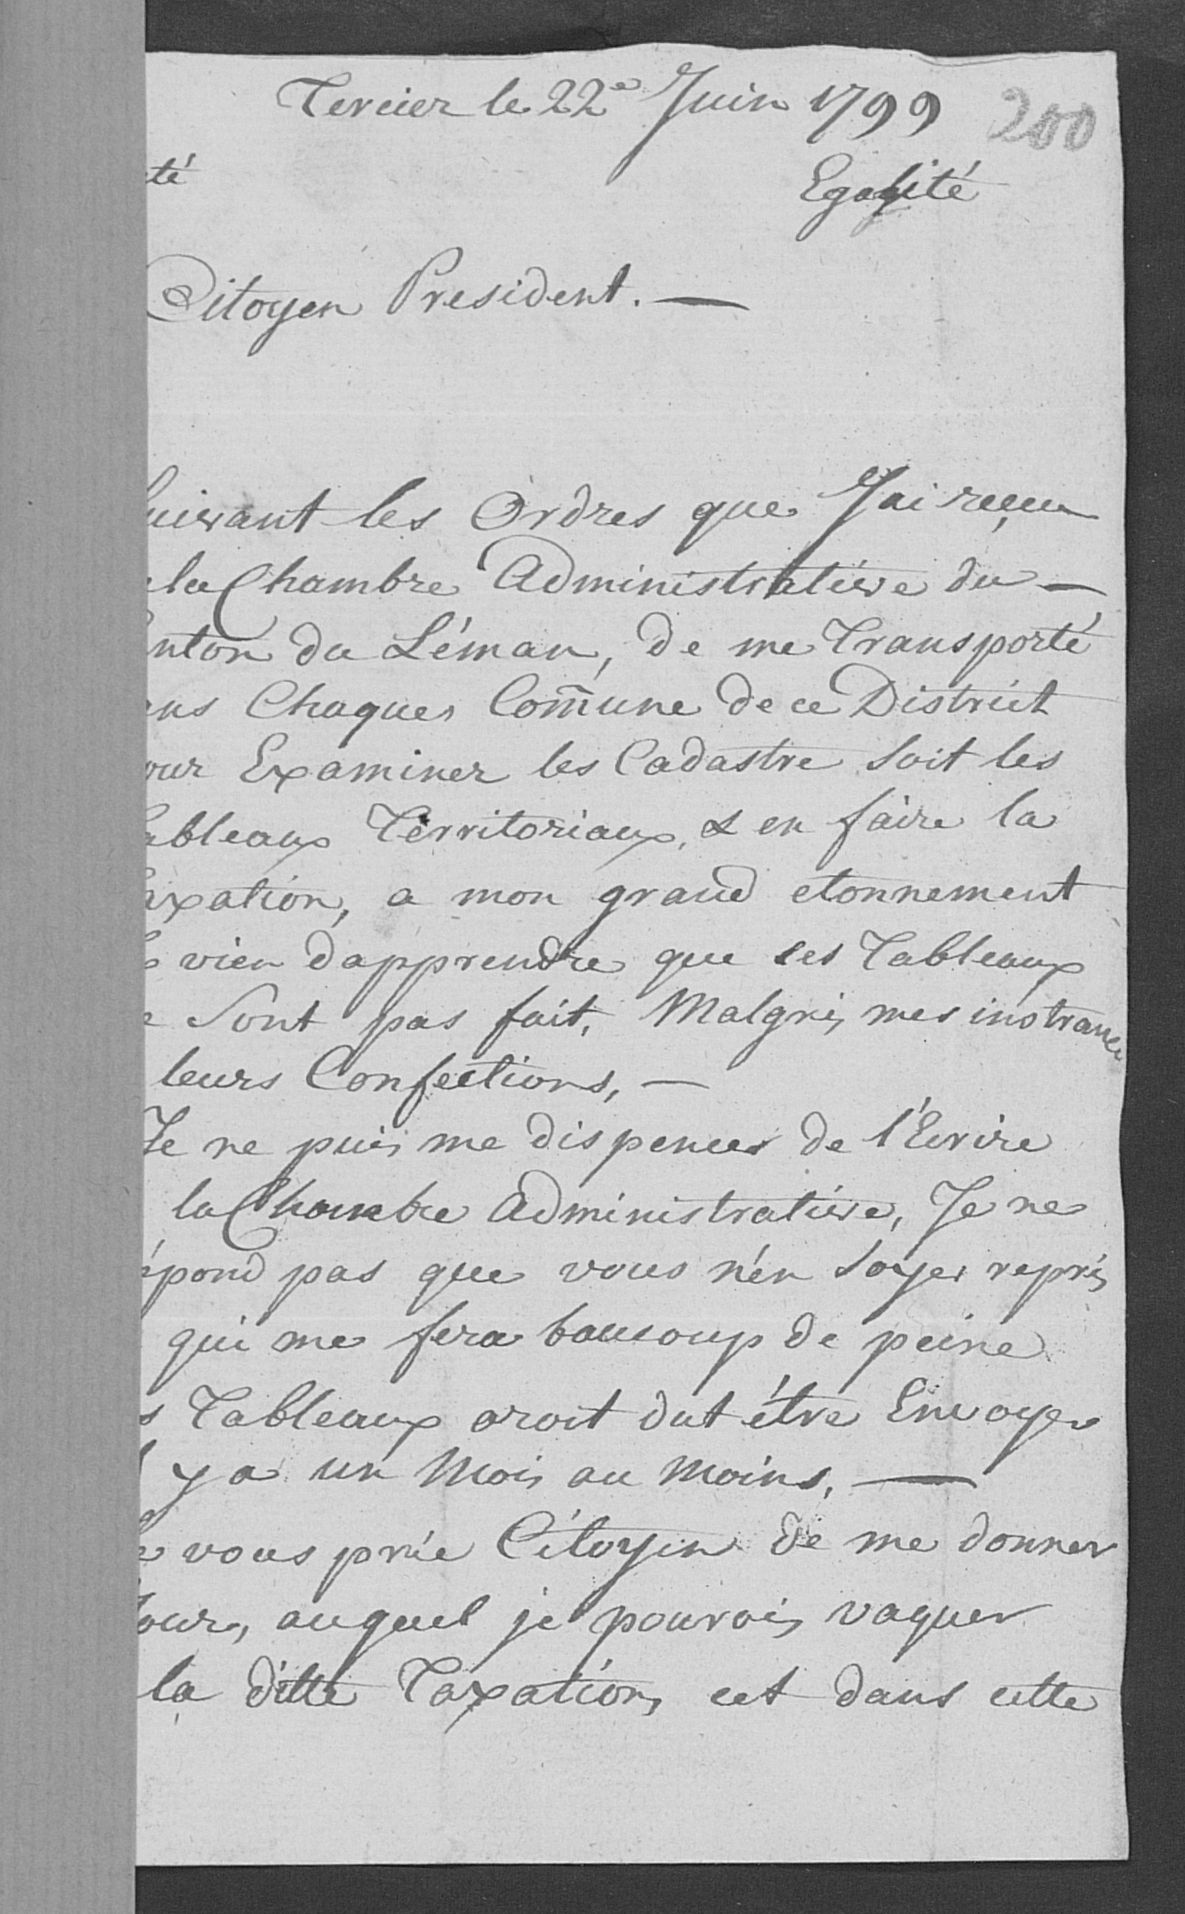 Tercier le 22e Juin 1799
200
té
Egalité
Citoyen President. —
Suivant les Ordres que J'ai reçeu
la Chambre Administrative du —
nton du Léman, de me Transporté
ns Chaques Com̃une de ce District
our Examiner les Cadastre soit les
ableaux Territoriaux, & en faire la
axation, a mon grand etonnement
vien dapprendre que ces Tableaux
e Sont pas fait, Malgrés mes instrance
leurs Confections, —
Je ne puis me dispencer de l'Ecrire
la Chambre Administrative, Je ne
épond pas que vous n'én soyes repris
qui me fera baucoup de peine
s Tableaux oroit dut étre Envoyer
y a un Mois au Moins, —
e vous prie Citoyen de me donner
Jour, auquel je pourois vaquer
la ditte Taxation, est dans cette